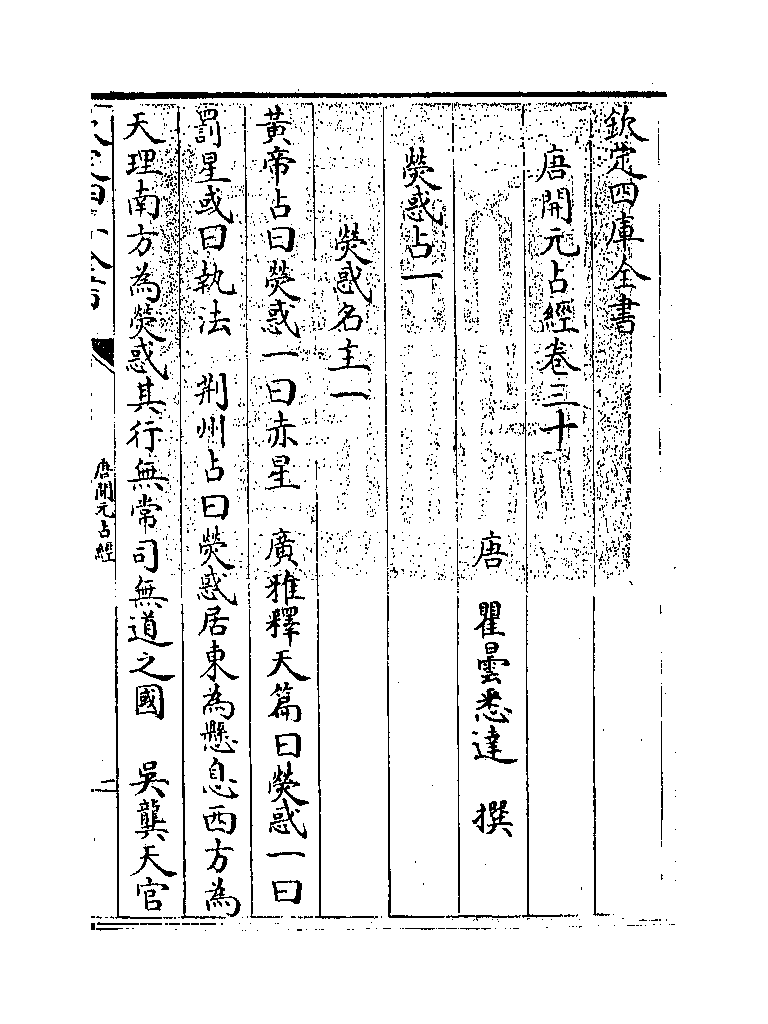 欽定四庫全書
唐開元占經卷三十
唐 瞿曇悉達 撰
熒惑占一
熒惑名主一
黃帝占曰熒惑一曰赤星 廣雅釋天篇曰熒惑一曰
罰星或曰執法 荆州占曰熒惑居東為懸息西方為
天理南方為熒惑其行無常司無道之國 吳龔天官
唐開元占經